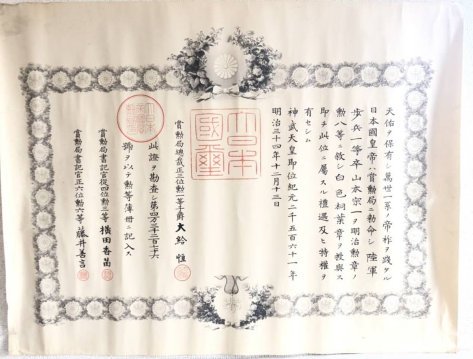 天佑ヲ保有シ萬世一系ノ帝祚ヲ踐ケル
日本國皇帝ハ賞勲局ニ勅命シ陸軍
歩兵一等卒山本宗一ヲ明治勲章ノ
勲八等ニ叙シ白色桐葉章ヲ授與ス
即チ此位ニ屬スル禮遇及ヒ特權ヲ
有セシム
神武天皇即位紀元二千五百六十一年
明治三十四年十二月十三日
大日本國璽
賞勲局總裁正三位勲一等子爵大給恒
此證ヲ勘査シ第四万三千二百二十六
號ヲ以テ勲等簿冊ニ記入ス
賞勲局書記官從四位勲三等横田香苗
賞勲局書記官正六位勲六等藤井善言